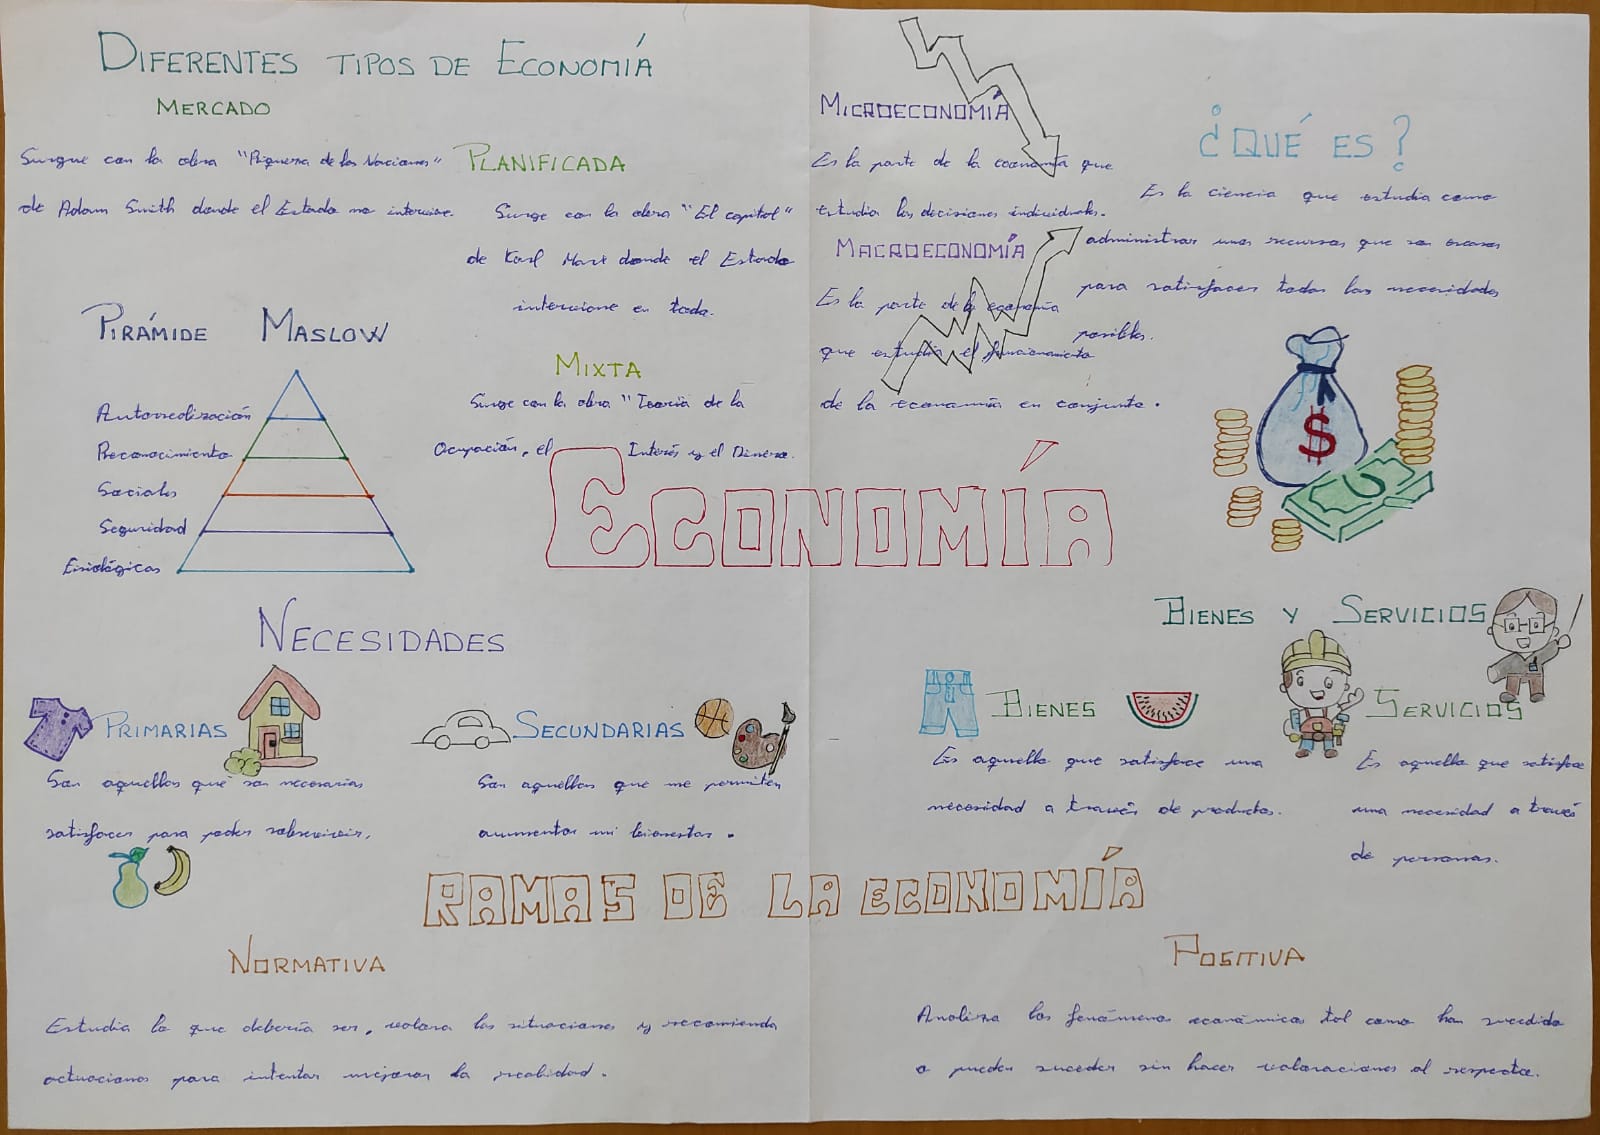 DIFERENTES TIPOS DE ECONOMÍA
MERCADO
Surgue con la obra "Riqueza de las Naciones"
de Adam Smith donde el Estado no interviene.
PLANIFICADA
Surge con la obra "El capital"
de Karl Marx donde el Estado
interviene en todo.
MIXTA
Surge con la obra "Teoría de la
Ocupación, el Interés y el Dinero.
PIRÁMIDE MASLOW
Autorrealización
Reconocimiento
Sociales
Seguridad
Fisiológicas
MICROECONOMÍA
Es la parte de la economía que
estudia las decisiones individuales.
MACROECONOMÍA
Es la parte de la economía
que estudia el funcionamiento
de la economía en conjunto.
¿QUÉ ES?
Es la ciencia que estudia como
administrar unos recursos que son escasos
para satisfacer todas las necesidades
posibles.
$
ECONOMÍA
NECESIDADES
PRIMARIAS
Son aquellas que son necesarias
satisfacer para poder sobrevivir.
SECUNDARIAS
Son aquellas que me permiten
aumentar mi bienestar.
BIENES Y SERVICIOS
BIENES
Es aquello que satisface una
necesidad a través de productos.
SERVICIOS
Es aquello que satisface
una necesidad a través
de personas.
RAMAS DE LA ECONOMÍA
NORMATIVA
Estudia lo que debería ser, valora las situaciones y recomienda
actuaciones para intentar mejorar la realidad.
POSITIVA
Analiza los fenómenos económicos tal como han sucedido
o pueden suceder sin hacer valoraciones al respecto.